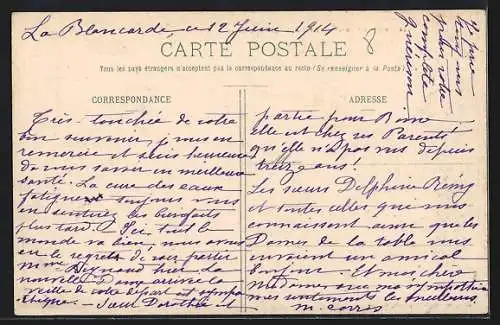 La Blancarde, ce 12 Juin 1914
CARTE POSTALE
Tous les pays étrangers n'acceptent pas la correspondance au recto (Se renseigner à la Poste)
8
Je prie
tous pour votre
complète
guérison
CORRESPONDANCE
Très touchée de votre
bon souvenir, je vous en
remercie et suis heureuse
de vous savoir en meilleure
santé. La cure des eaux
fatigue toujours vous
en sentirez les bienfaits
plus tard. Ici tout le
monde va bien, nous avons
eu le regret de voir partir
Mme Reynaud hier. La
nouvelle Dame arrive la
veille de votre départ est sympa-
thique. Sœur Dorothée est
ADRESSE
partie pour Rome
elle est chez ses Parents
qu'elle n'a pas vus depuis
treize ans!
Les sœurs Delphine Rémy
et toutes celles que vous
connaissent ainsi que les
Dames de la table vous
envoient un amical
Et moi chère
Madame avec ma sympathie
mes sentiments les meilleurs
M.